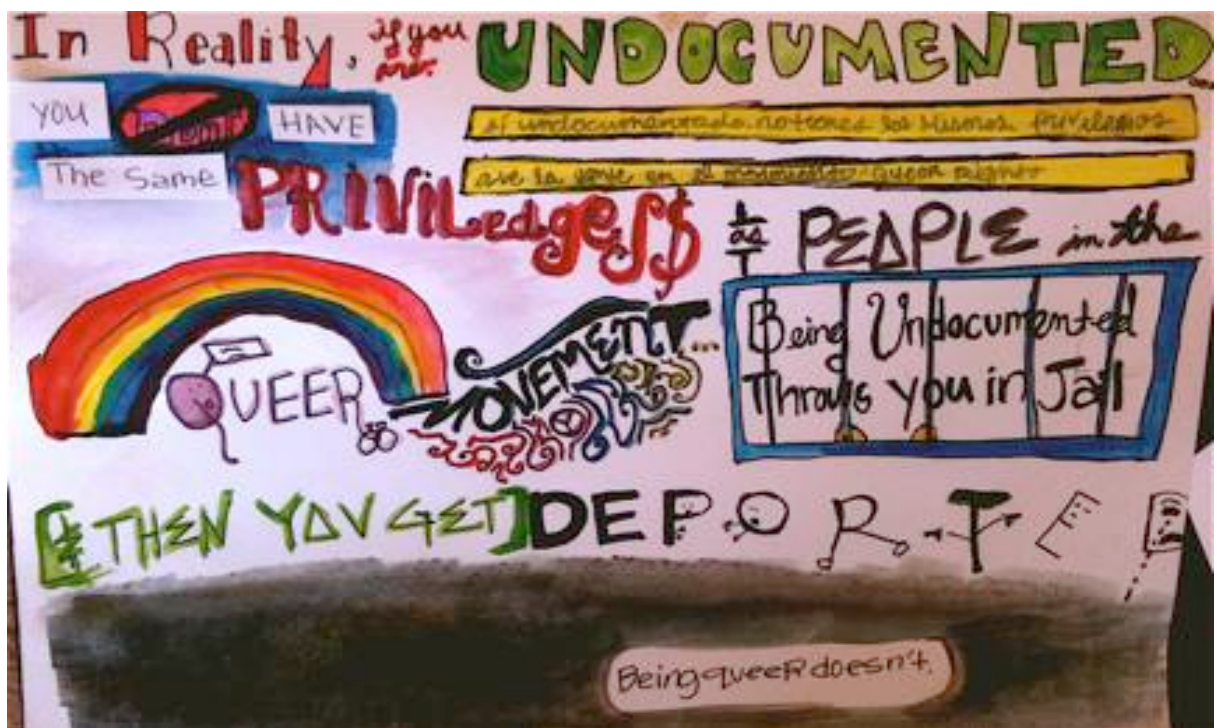 In Reality, if you are: UNDOCUMENTED...
YOU Don't HAVE
The Same PRIVILedges$
si undocumentado no tienes los mismos privilegios
que la gente en el movimiento queer
& as PEOPLE in the
QUEER MOVEMENT...
Being Undocumented
Throws you in Jail
[& THEN YOU GET] DEPORTED
Being queer doesn't.